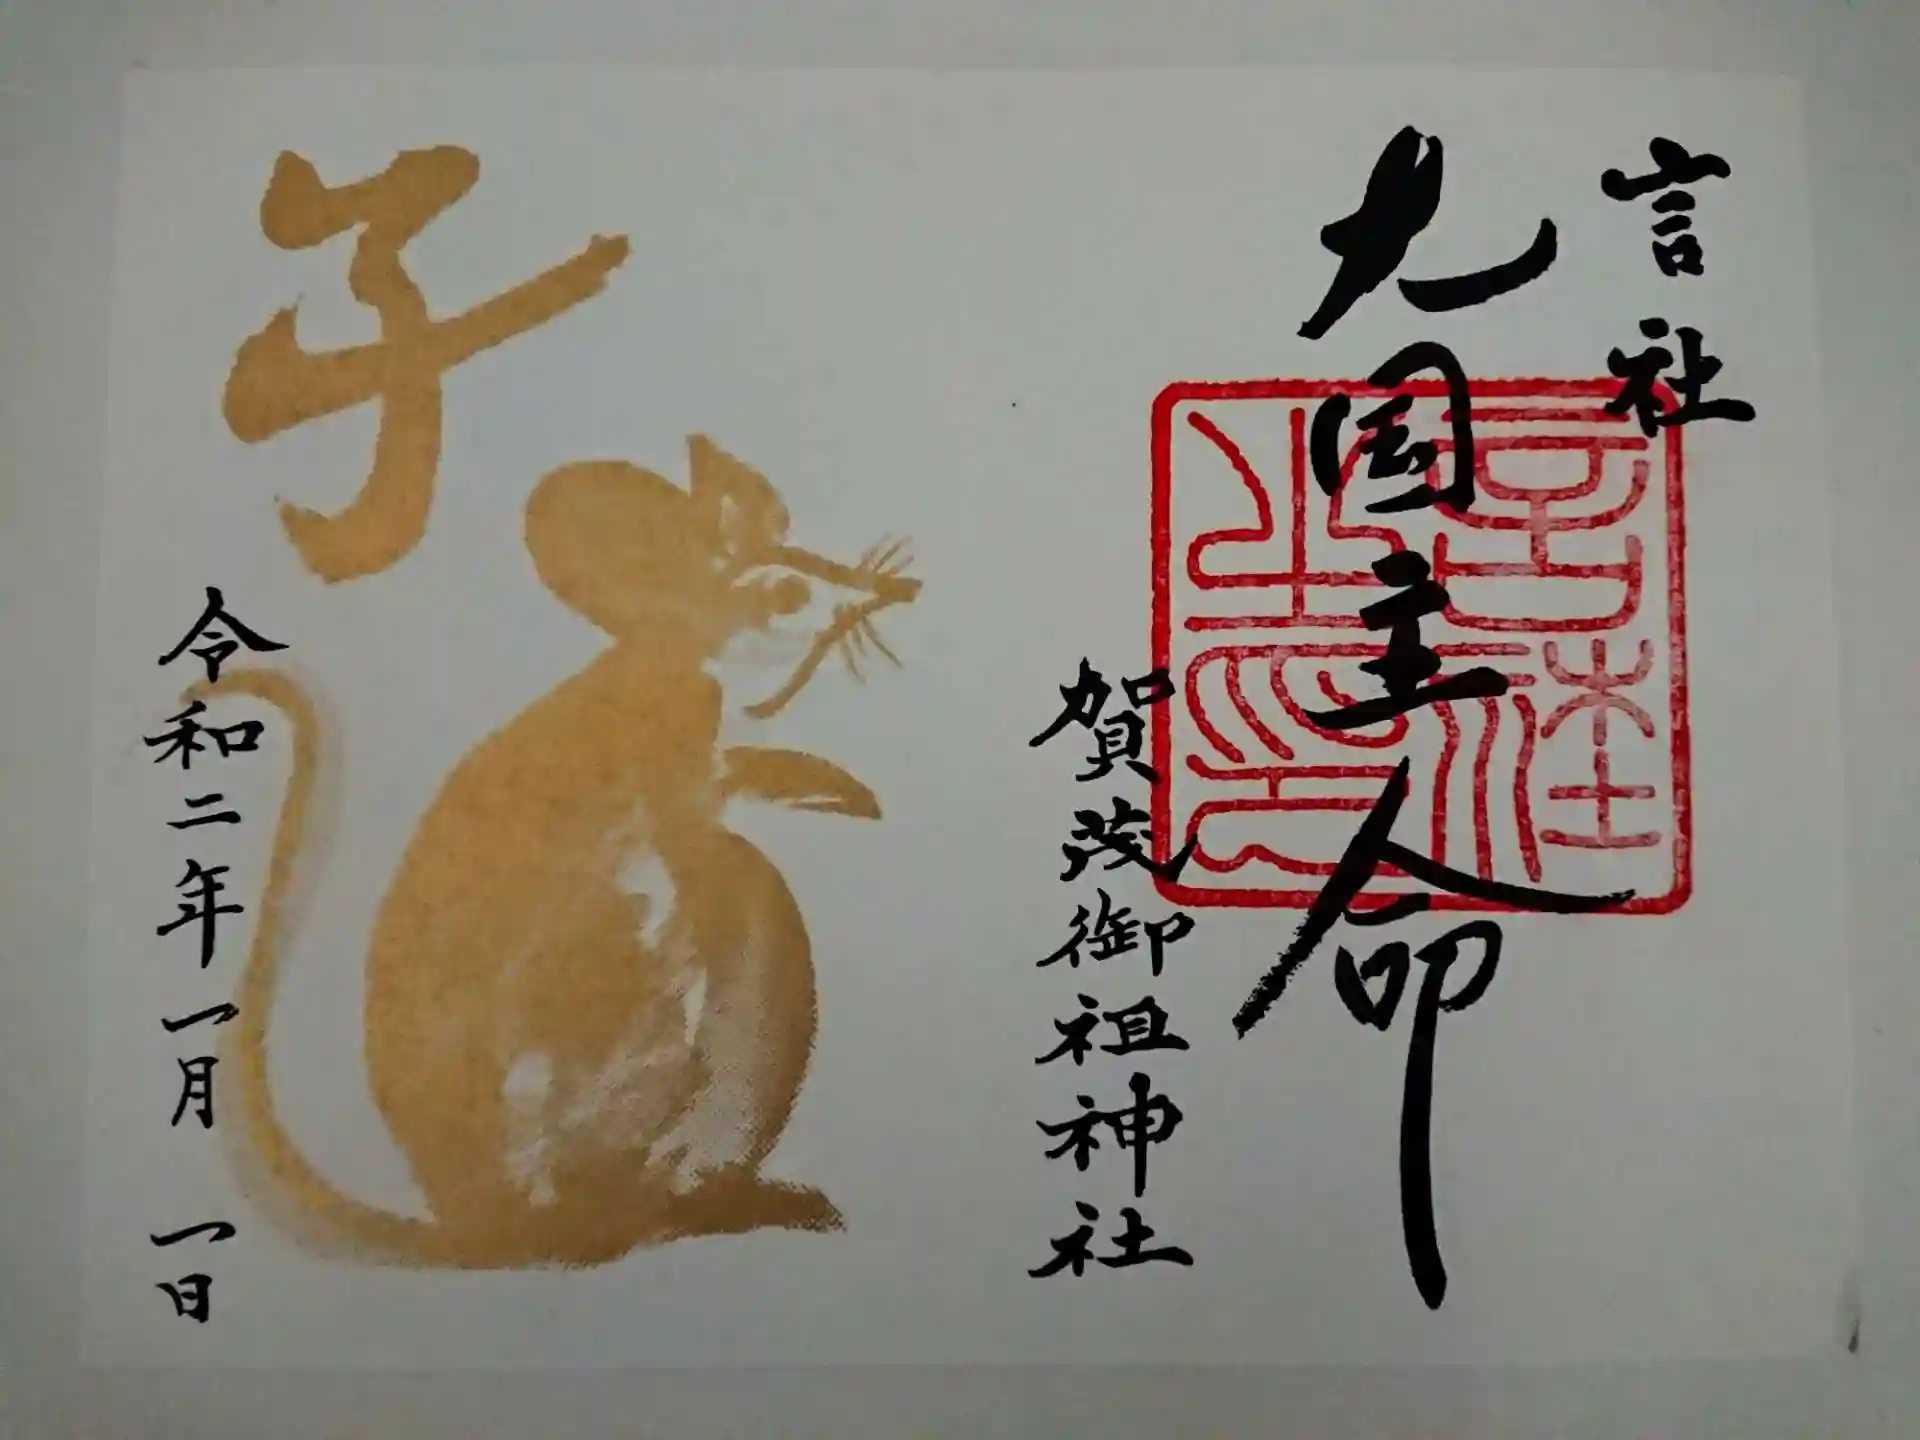 言社
大国主命
言社之印
賀茂御祖神社
子
令和二年一月一日